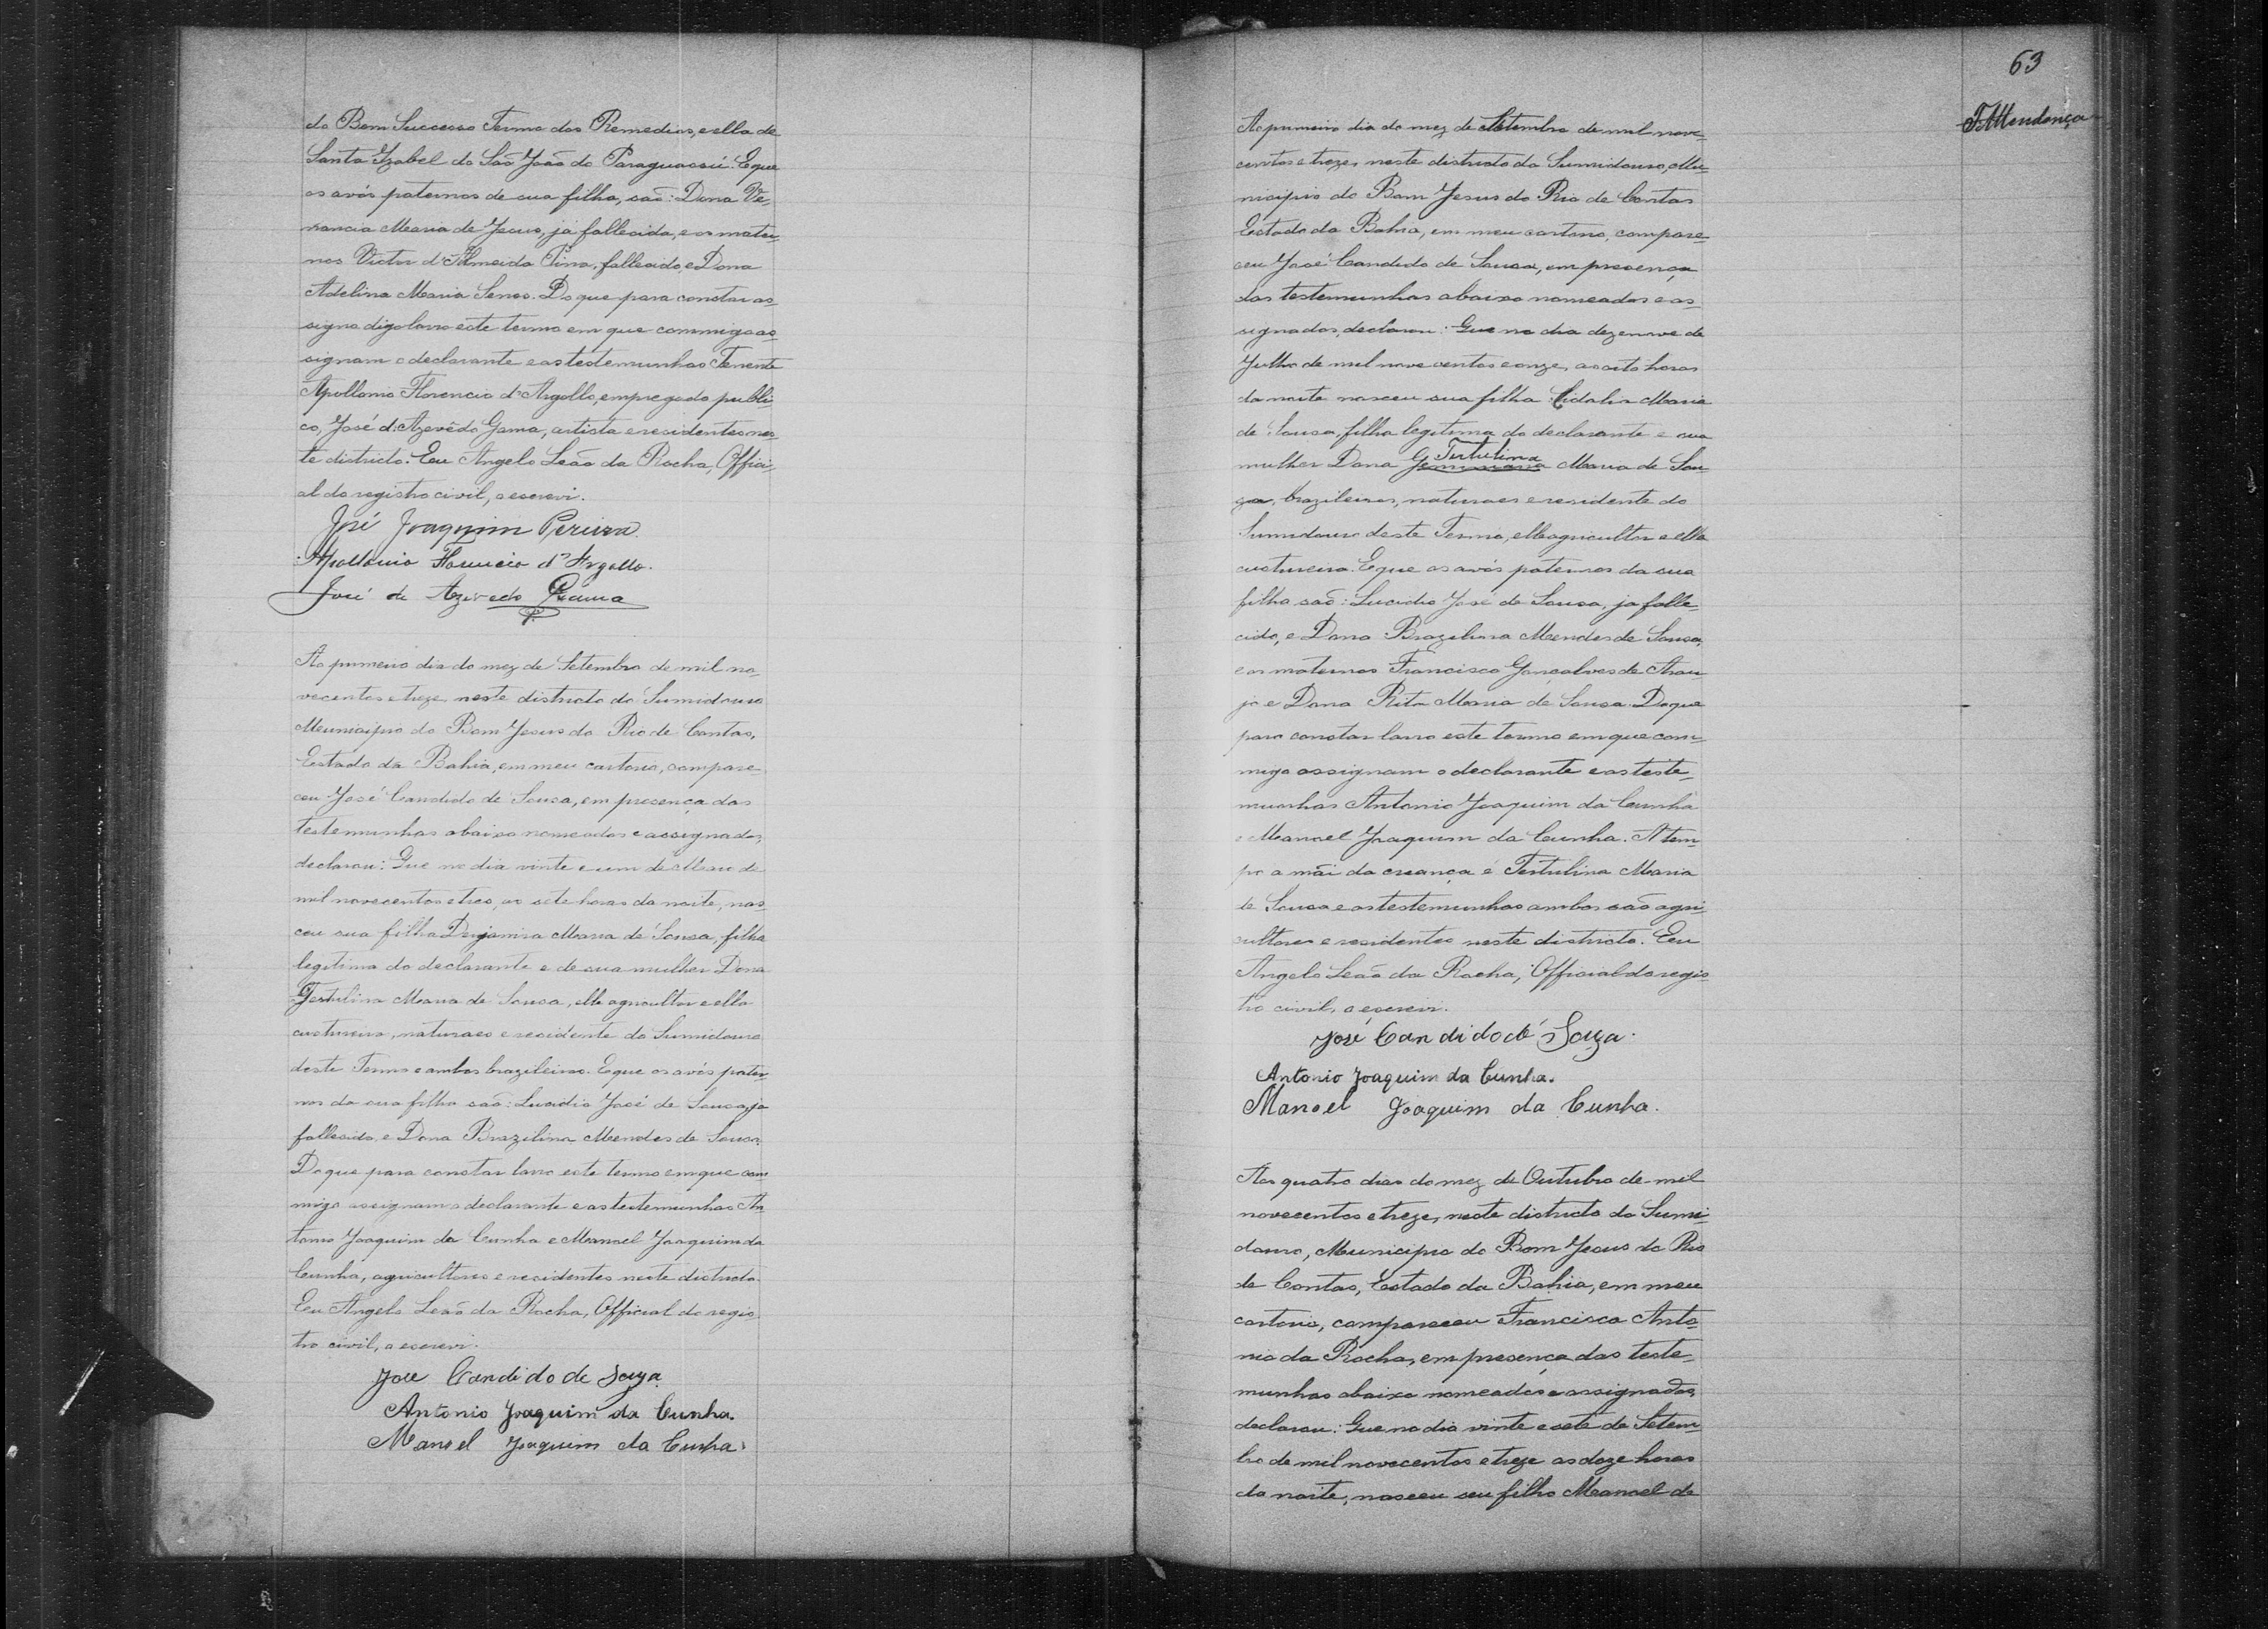 do Bom Successo Termo dos Remedios, e ella de
Santa Izabel do São João do Paraguassú. E que
os avós paternos de sua filha, saõ: Dona Ve-
nancia Maria de Jesus, ja fallecida, e os mater-
nos Victor d'Almeida Pina, fallecido, e Dona
Adelina Maria Senos. Do que para constar as-
signo digo lavro este termo em que commigo as-
signam o declarante e as testemunhas Tenente
Apollonio Florencio d'Argollo, empregado publi-
co, José d'Azevêdo Gama, artista e residentes nes-
te districto. Eu Angelo Leaõ da Rocha, Offici-
al do registro civil, o escrevi.
José Joaquim Pereira.
Apollonio Florencio d'Argollo.
José de Azevedo Gama
Ao primeiro dia do mez de Setembro de mil no-
vecentos e treze, neste districto do Sumidouro
Municipio do Bom Jesus do Rio de Contas,
Estado da Bahia, em meu cartorio, compare-
ceu José Candido de Sousa, em presença das
testemunhas abaixo nomeadas e assignadas,
declarou: Que no dia vinte e um de Maio de
mil novecentos e tres, as sete horas da noite, nas-
ceu sua filha Dejanira Maria de Sousa, filha
legitima do declarante e de sua mulher Dona
Tertulina Maria de Sousa, elle agricultor e ella
custureira, naturaes e residente do Sumidouro
deste Termo e ambos brazileiros. E que os avós pater-
nos da sua filha saõ: Lucidio José de Sousa ja
fallecido, e Dona Brazilina Mendes de Sousa.
Do que para constar lavro este termo em que com-
migo assignam o declarante e as testemunhas An-
tonio Joaquim da Cunha e Manoel Joaquim da
Cunha, agricultores e residentes neste districto.
Eu Angelo Leaõ da Rocha, Official do regis-
tro civil, o escrevi.
José Candido de Souza
Antonio Joaquim da Cunha.
Manoel Joaquim da Cunha.
63
T. Mendonça
Ao primeiro dia do mez de Setembro de mil nove-
centos e treze, neste districto do Sumidouro, Mu-
nicipio do Bom Jesus do Rio de Contas
Estado da Bahia, em meu cartorio, compare-
ceu José Candido de Sousa, em presença
das testemunhas abaixo nomeadas e as-
signadas, declarou: Que no dia dezenove de
Julho de mil nove centos e onze, as oito horas
da noite nasceu sua filha Cidalia Maria
de Sousa, filha legitima do declarante e sua
Tertulina
mulher Dona Geminiana Maria de Sou-
za, brazileiros, naturaes e residente do
Sumidouro deste Termo, elle agricultor e ella
custureira. E que os avós paternos da sua
filha saõ: Lucidio José de Sousa, ja falle-
cido, e Dona Brazilina Mendes de Sousa,
e os maternos Francisco Gonçalves de Arau-
jo e Dona Rita Maria de Sousa. Do que
para constar lavro este termo em que com-
migo assignam o declarante e as teste-
munhas Antonio Joaquim da Cunha
e Manoel Joaquim da Cunha. A tem-
po a mãi da creança é Tertulina Maria
de Sousa e as testemunhas ambos saõ agri-
cultores e residentes neste districto. Eu
Angelo Leaõ da Rocha, Official do regis-
tro civil, o escrevi.
José Candido de Souza.
Antonio Joaquim da Cunha.
Manoel Joaquim da Cunha.
Aos quatro dias do mez de Outubro de mil
novecentos e treze, neste districto do Sumi-
douro, Municipio do Bom Jesus do Rio
de Contas, Estado da Bahia, em meu
cartorio, compareceu Francisco Anto-
nio da Rocha, em presença das teste-
munhas abaixo nomeadas e assignadas,
declarou: Que no dia vinte e sete de Setem-
bro de mil novecentos e treze as doze horas
da noite, nasceu seu filho Manoel de